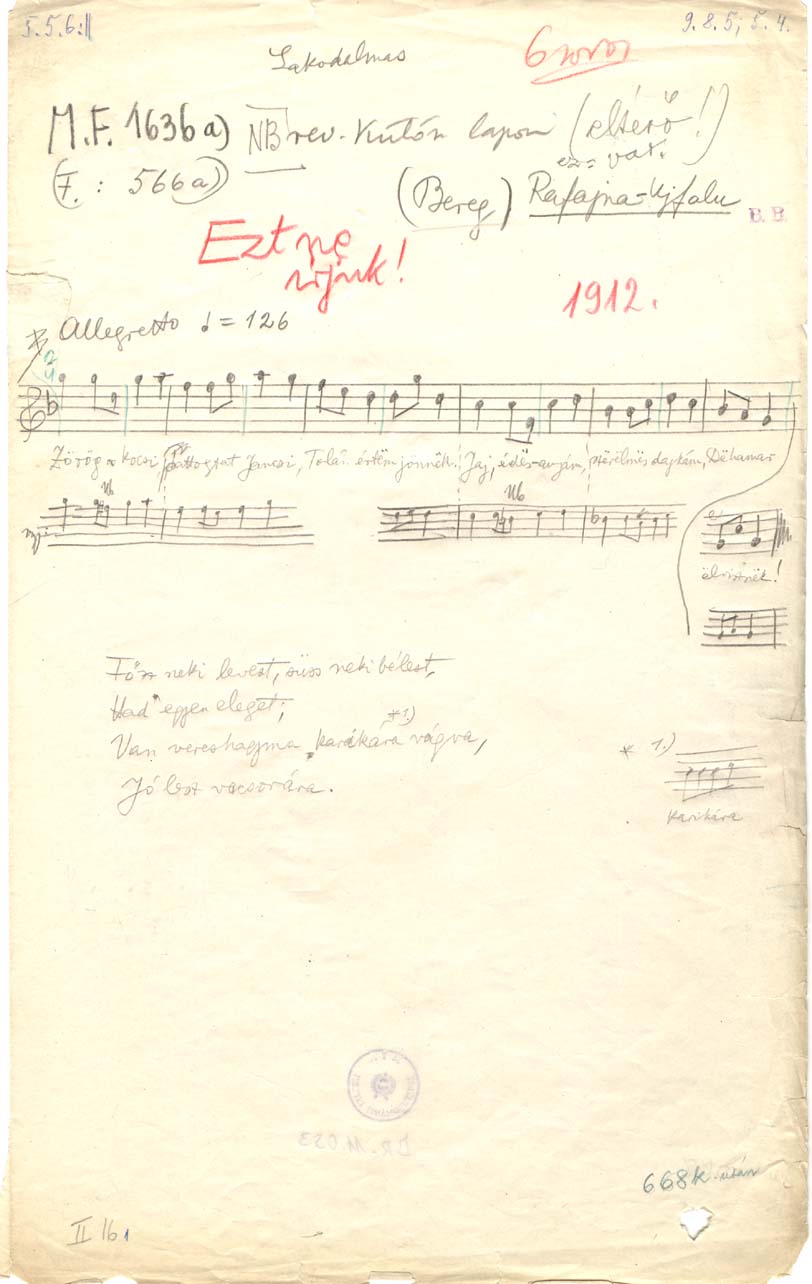 5.5.6:||
9.8.5; 5.4.
Lakodalmas
6 soros
M.F. 1636a) NB rev. Külön lapon (eltérő!)
ez = var.
(F. : 566a)
(Bereg) Rafajna-Ujfalu
B. B.
Ezt ne
írjuk!
1912.
Allegretto ♩= 126
2
4
Zörög a kocsi, pattogtat Jancsi, Talán értëm jönnek. Jaj, édës-anyám, szérelmës dajkám, Dë hamar
Nb
Nb
elvisznek!
Főzz neki levest, süss neki bélest,
Had egyen eleget;
*1.)
Van vereshagyma karikára vágva,
Jó lesz vacsorára.
* 1.)
karikára
668k után
II 161